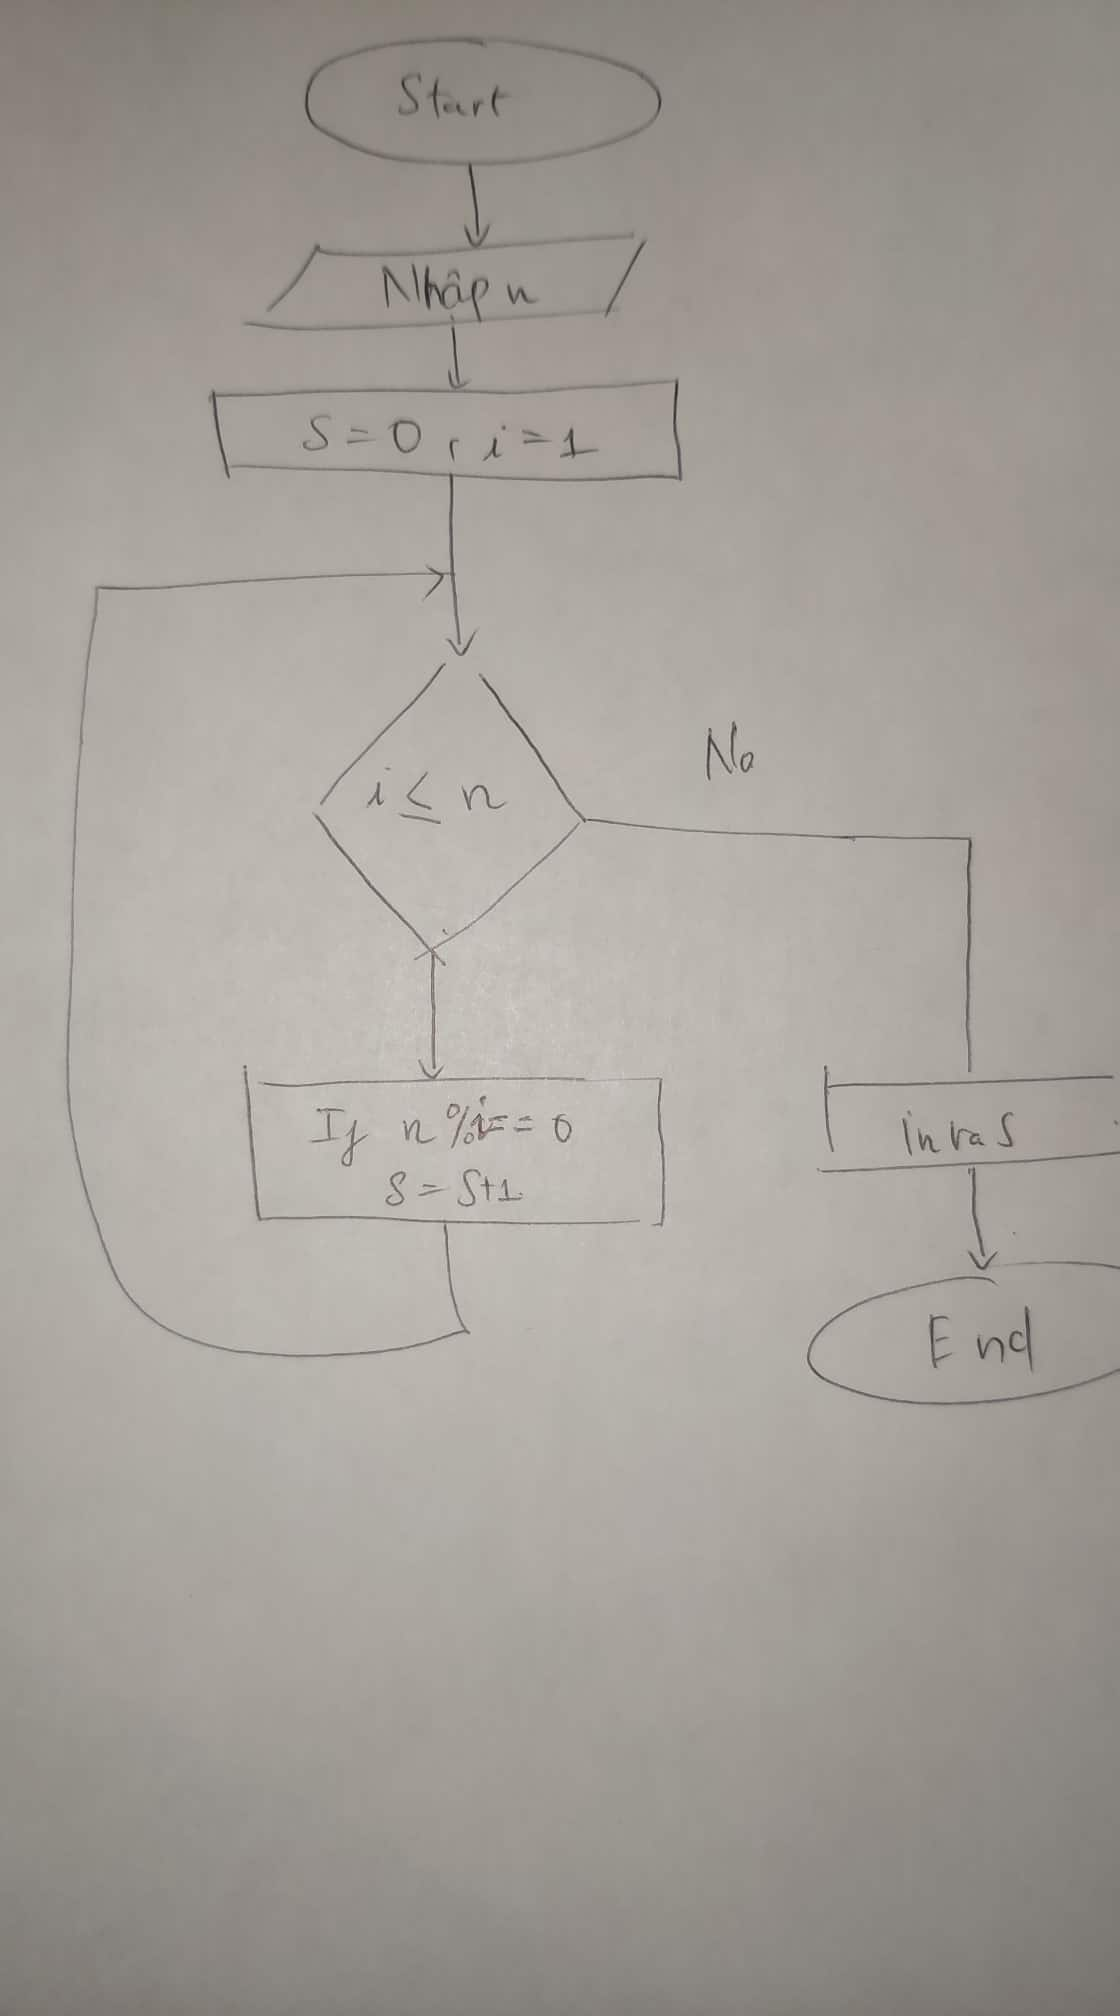 Start
Nhập n
S = 0, i = 1
i ≤ n
No
If n % i == 0
S = S+1
in ra S
End